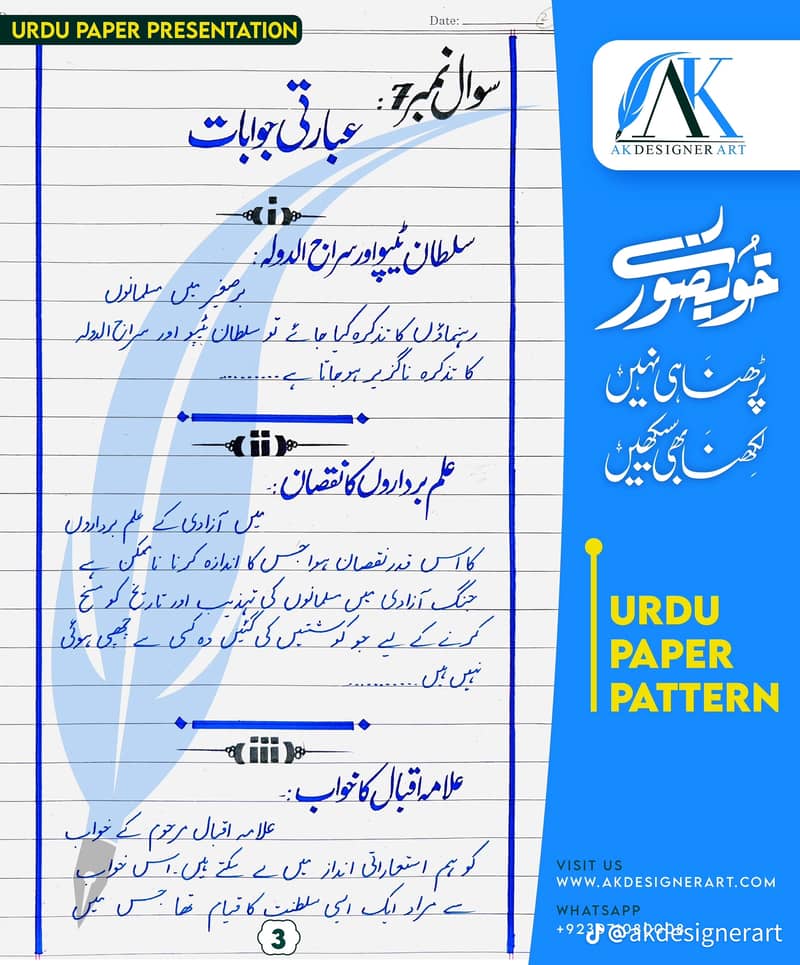 Date:
URDU PAPER PRESENTATION
سوال نمبر 7:
عبارتی جوابات
i
سلطان ٹیپو اور سراج الدولہ:
برصغیر میں مسلمانوں
رہنماؤں کا تذکرہ کیا جائے تو سلطان ٹیپو اور سراج الدولہ
کا تذکرہ ناگزیر ہو جاتا ہے..........
ii
علم برداروں کا نقصان:-
میں آزادی کے علم برداروں
کا اس قدر نقصان ہوا جس کا اندازہ کرنا ناممکن ہے
جنگ آزادی میں مسلمانوں کی تہذیب اور تاریخ کو مسخ
کرنے کے لیے جو کوششیں کی گئیں وہ کسی سے چھپی ہوئی
نہیں ہیں...........
iii
علامہ اقبال کا خواب:-
علامہ اقبال مرحوم کے خواب
کو ہم استعاراتی انداز میں لے سکتے ہیں۔ اس خواب
سے مراد ایک ایسی سلطنت کا قیام تھا جس میں
3
AK
AK DESIGNER ART
خوبصورتی
پڑھنا ہی نہیں
لکھنا بھی سیکھیں
URDU
PAPER
PATTERN
VISIT US
WWW.AKDESIGNERART.COM
WHATSAPP
@akdesignerart